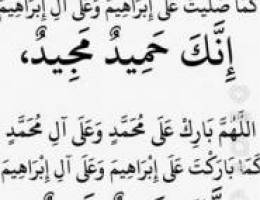 كَمَا صَلَّيْتَ عَلَى إِبْرَاهِيمَ وَعَلَى آلِ إِبْرَاهِيمَ
إِنَّكَ حَمِيدٌ مَجِيدٌ،
اللَّهُمَّ بَارِكْ عَلَى مُحَمَّدٍ وَعَلَى آلِ مُحَمَّدٍ
كَمَا بَارَكْتَ عَلَى إِبْرَاهِيمَ وَعَلَى آلِ إِبْرَاهِيمَ